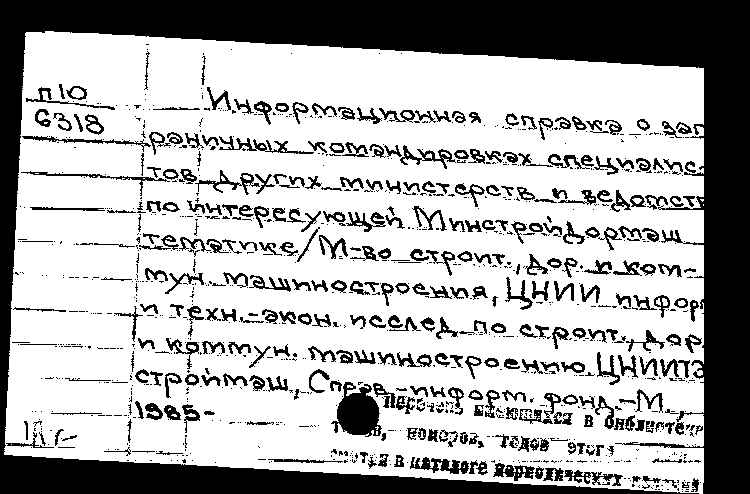 п10
G318
Информационная справка о заг
раничных командировках специалис-
тов других министерств и ведомств
по интересующей Минстройдормаш
тематике/М-во строит., дор. и ком-
мун. машиностроения, ЦНИИ информ
и техн.-экон. исслед. по строит., дор.
и коммун. машиностроению ЦНИИТЭ
строймаш, Справ.-информ. фонд.-М.,
1985-
Перечень имеющихся в библиотеке
томов, номеров, годов этого
смотри в каталоге периодических изданий